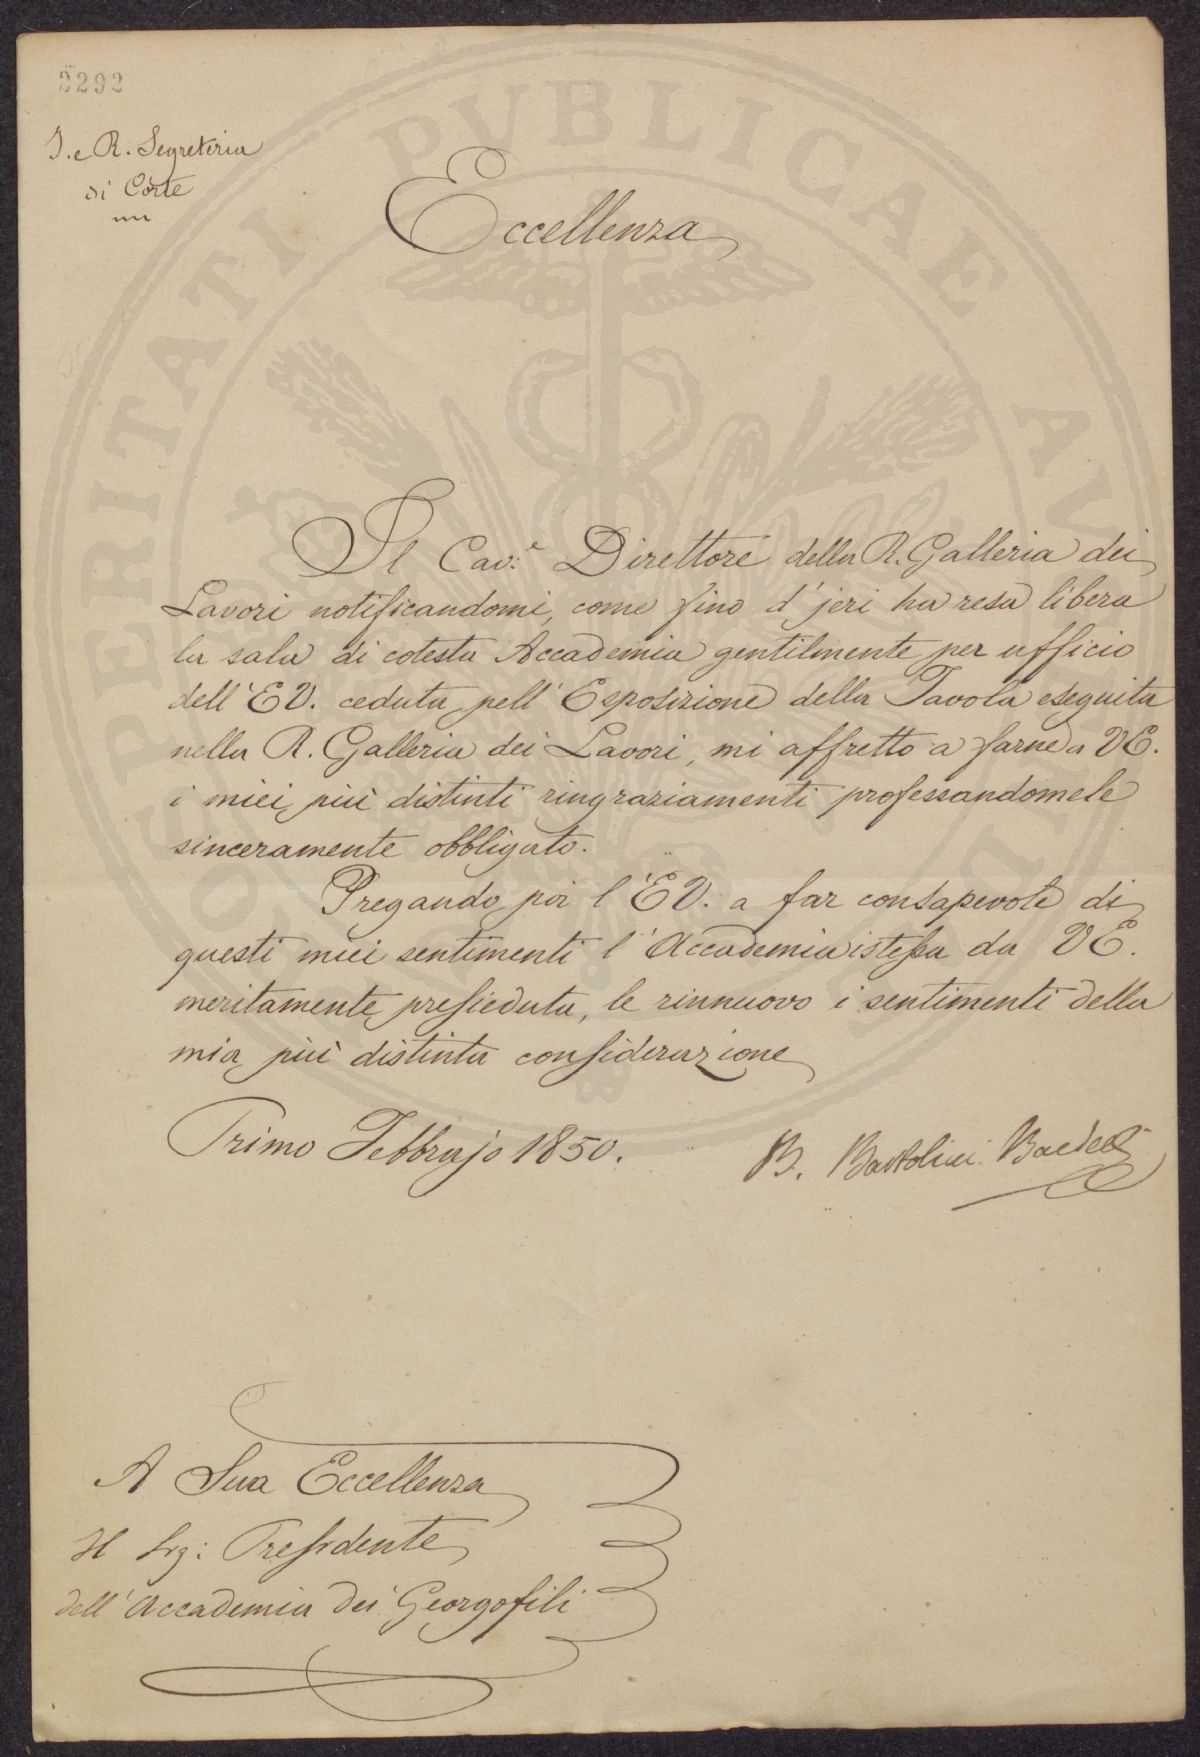 2292
I. e R. Segreteria
di Corte
Eccellenza
Il Cav.e Direttore della R. Galleria dei
Lavori notificandomi, come fino d'jeri ha resa libera
la sala di cotesta Accademia gentilmente per ufficio
dell'E V. ceduta pell'Esposizione della Tavola eseguita
nella R. Galleria dei Lavori, mi affretto a farne a V E.
i miei più distinti ringraziamenti professandomele
sinceramente obbligato.
Pregando poi l'E V. a far consapevole di
questi miei sentimenti l'Accademia istessa da V E.
meritamente presieduta, le rinnuovo i sentimenti della
mia più distinta considerazione
Primo Febbrajo 1850.
B. Bartolini Baldelli
A Sua Eccellenza
Il Sig: Presidente
dell'Accademia dei Georgofili
PROSPERITATI PVBLICAE AVGENDAE